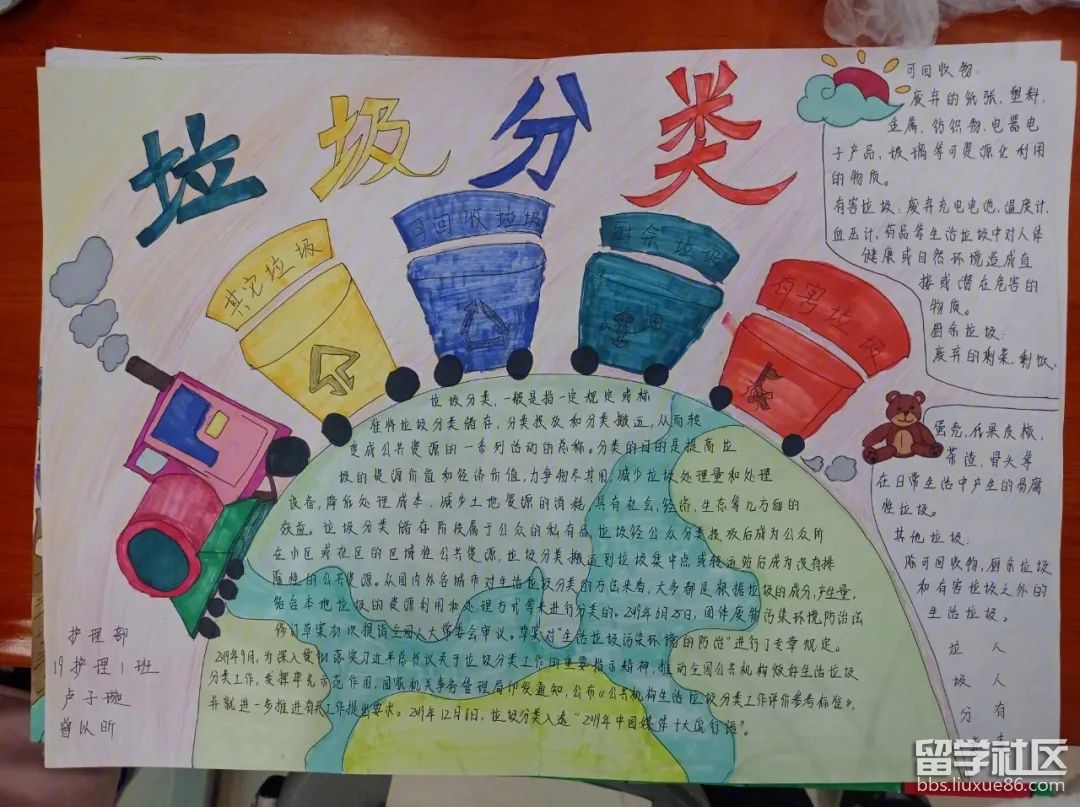 垃圾分类
其它垃圾
可回收垃圾
厨余垃圾
有害垃圾
可回收物：
废弃的纸张，塑料，
金属，纺织物，电器电
子产品，玻璃等可资源化利用
的物质。
有害垃圾：废弃充电电池，温度计，
血压计，药品等生活垃圾中对人体
健康或自然环境造成直
接或潜在危害的
物质。
厨余垃圾：
废弃的剩菜，剩饭，
蛋壳，瓜果皮核，
茶渣，骨头等
在日常生活中产生的易腐
性垃圾。
其他垃圾：
除可回收物，厨余垃圾
和有害垃圾之外的
生活垃圾。
垃 人
圾 人
分 有
垃圾分类，一般是指一定规定或标
准将垃圾分类储存，分类投放和分类搬运，从而转
变成公共资源的一系列活动的总称。分类的目的是提高垃
圾的资源价值和经济价值，力争物尽其用，减少垃圾处理量和处理
设备，降低处理成本，减少土地资源的消耗，具有社会，经济，生态等几方面的
效益。垃圾分类储存阶段属于公众的私有品，垃圾经公众分类投放后成为公众所
在小区或社区的区域性公共资源，垃圾分类搬运到垃圾集中点或转运站后成为没有排
除性的公共资源。从国内外各城市对生活垃圾分类的方法来看，大多都是根据垃圾的成分，产生量，
结合本地垃圾的资源利用和处理方式等来进行分类的。2019年6月25日，固体废物污染环境防治法
修订草案初次提请全国人大常委会审议。草案对"生活垃圾污染环境的防治"进行了专章规定。
2019年9月，为深入贯彻落实习近平总书记关于垃圾分类工作的重要指示精神，推动全国公共机构做好生活垃圾
分类工作，发挥率先示范作用，国家机关事务管理局印发通知，公布《公共机构生活垃圾分类工作评价参考标准》，
并就进一步推进有关工作提出要求。2019年12月6日，垃圾分类入选"2019年中国媒体十大流行语"。
护理部
19护理1班
卢子璇
曾以昕
留学社区
bbs.liuxue86.com